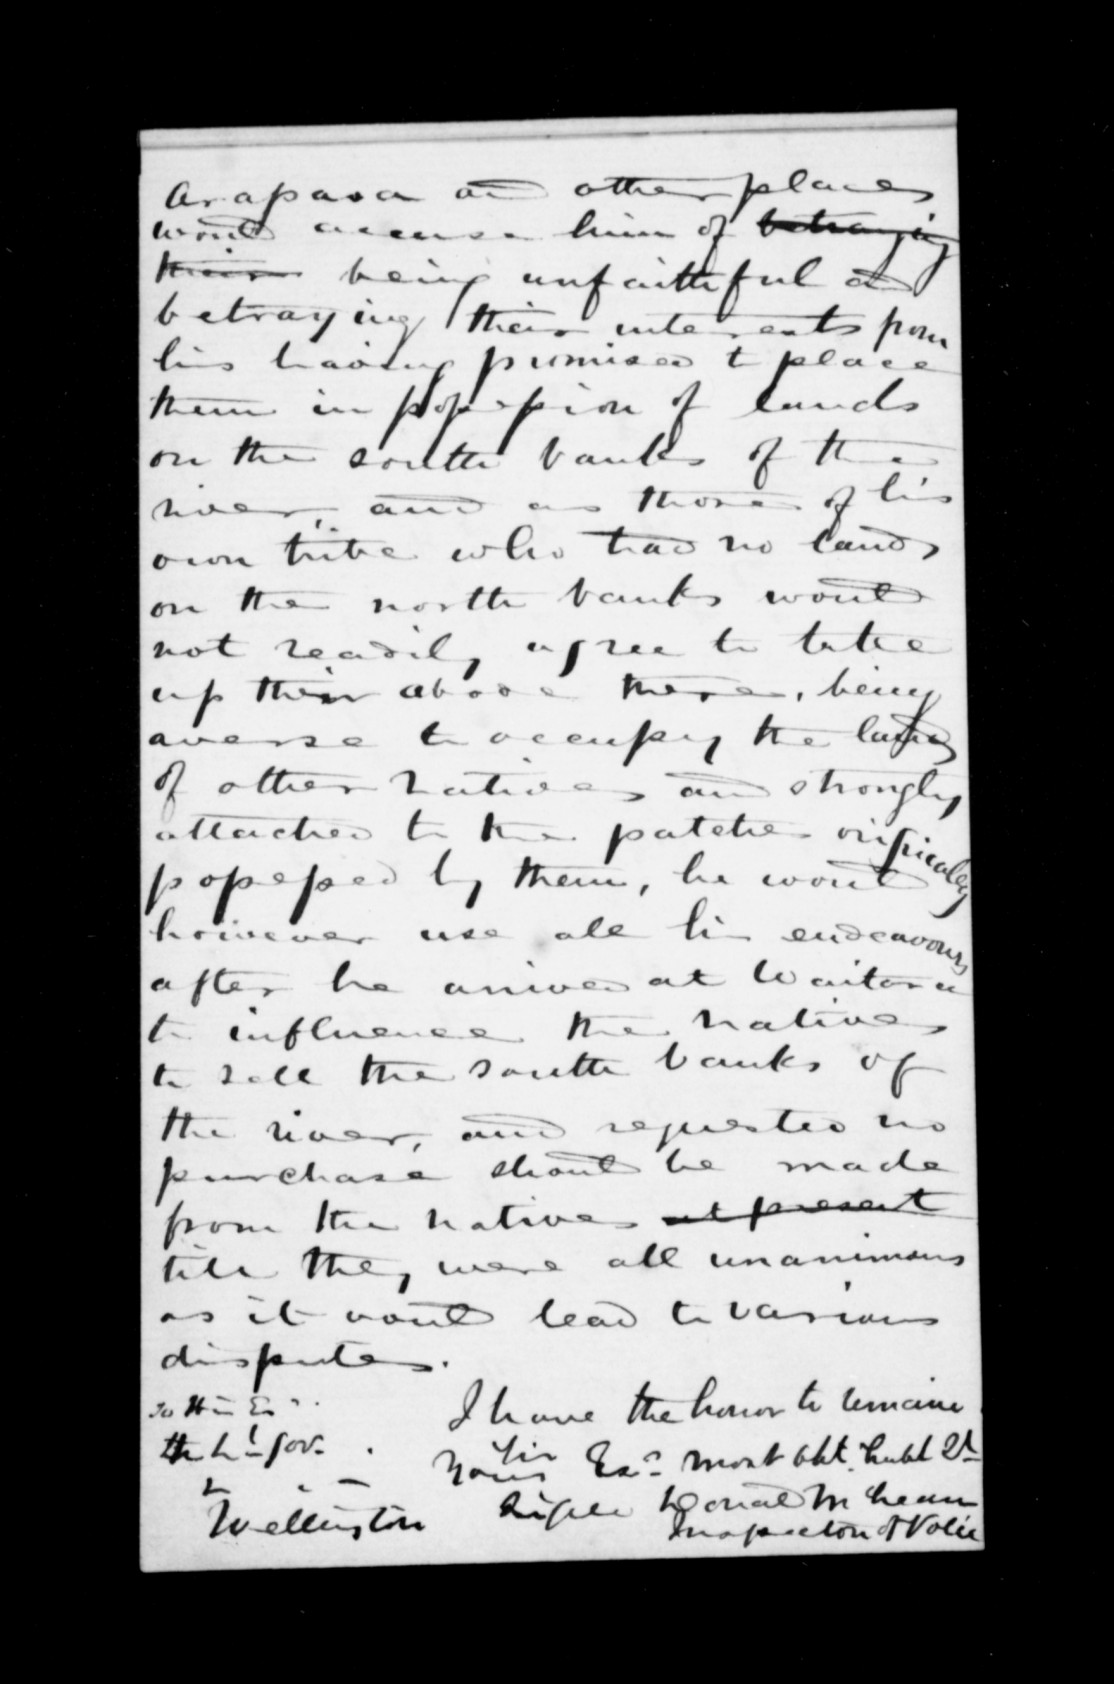 Arapawa and other places
would accuse him of betraying
their being unfaithful and
betraying their interests from
his having promised to place
them in possession of lands
on the south banks of the
river, and as those of his
own tribe who had no lands
on the north banks would
not readily agree to take
up their abode there, being
averse to occupy the lands
of other natives and strongly
attached to the patches originaley
possessed by them, he would
however use all his endeavours
after he arrived at Waitara
to influence the natives
to sell the south banks of
the river, and requested no
purchase should be made
from the natives at present
till they were all unanimous
as it would lead to various
disputes.
I have the honor to remain
Sir
Your Exs. most obt. humbl St
Signed Donald McLean
Inspector of Police
To His Ex
the Lt. Gov.
Wellington